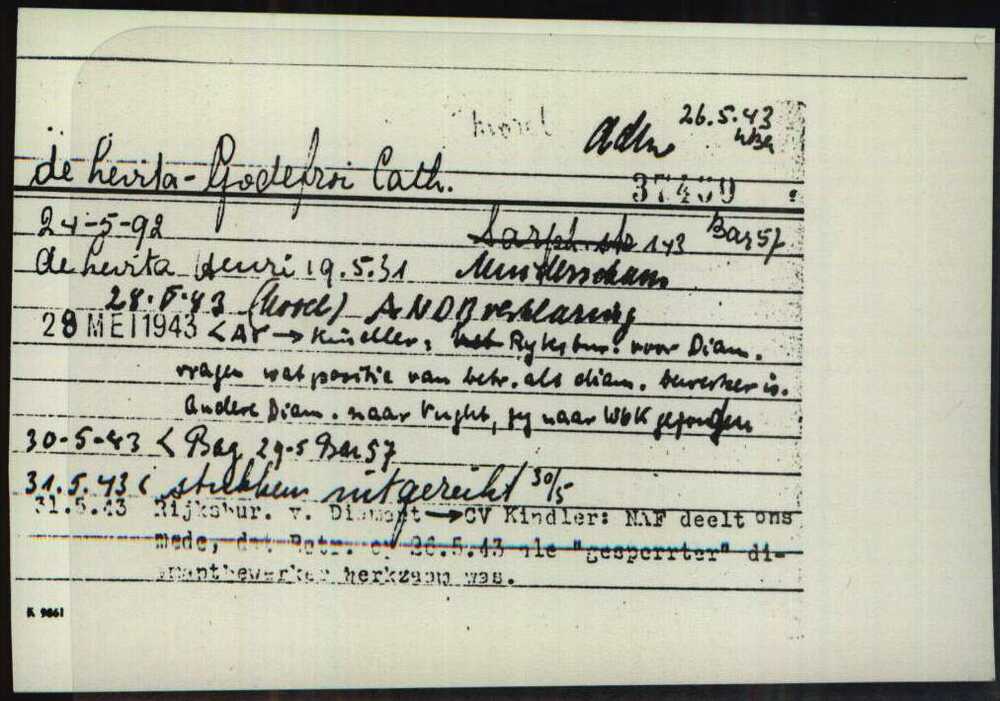 26.5.43
Adm
de Levita-Godefroi Cath.
37459
24-5-92 Sarph. str 143 Bar 57
de Levita Henri 19.5.31
28.5.43 (Morel) ANDB verklaring
28 MEI 1943 < AR → Kindler: Rijksbur. voor Diam.
vragen wat positie van betr. als diam. bewerker is.
Andere Diam. naar Vught, zij naar WbK gezonden
30-5-43 < Bag 29-5 Bar 57
31.5.43 < stukken uitgereikt 30/5
31.5.43 Rijksbur. v. Diamant → CV Kindler: NAF deelt ons
mede, dat Betr. op 26.5.43 als "gesperrter" di-
amantbewerker werkzaam was.
K 9861